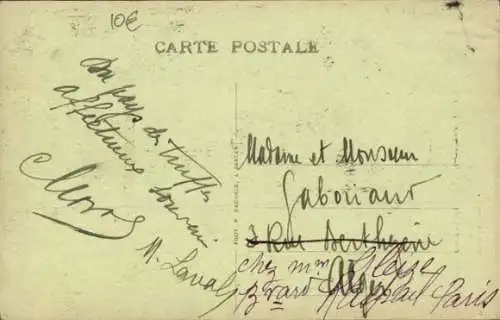 10€
CARTE POSTALE
Du pays des truffes
affectueux souvenir
M. Laval
Madame et Monsieur
Gaboriaud
3 Rue Berthoie
chez mme
Bvard Raspail Paris